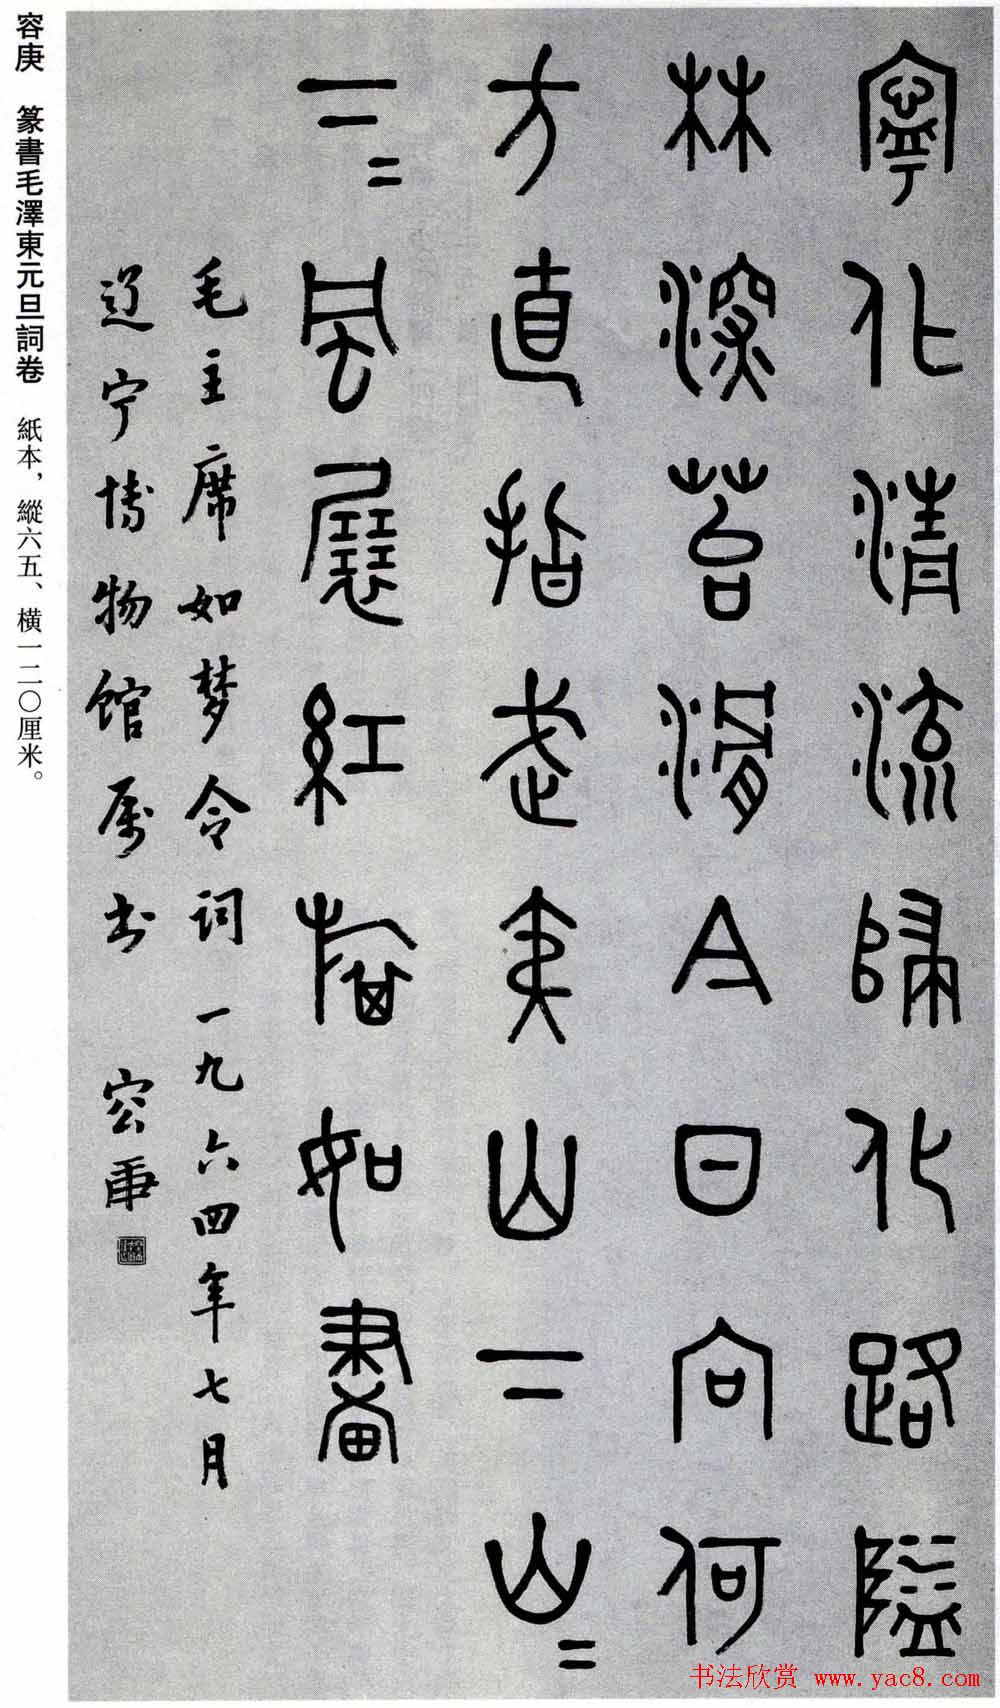 寧化清流歸化路隘
林深苔滑今日向何
方直指武夷山下山＝
下＝風展紅旗如畫
毛主席如梦令词 一九六四年七月
辽宁博物馆属书 容庚
容庚 篆書毛澤東元旦詞卷 紙本，縱六五、橫一二〇厘米。
书法欣赏 www.yac8.com